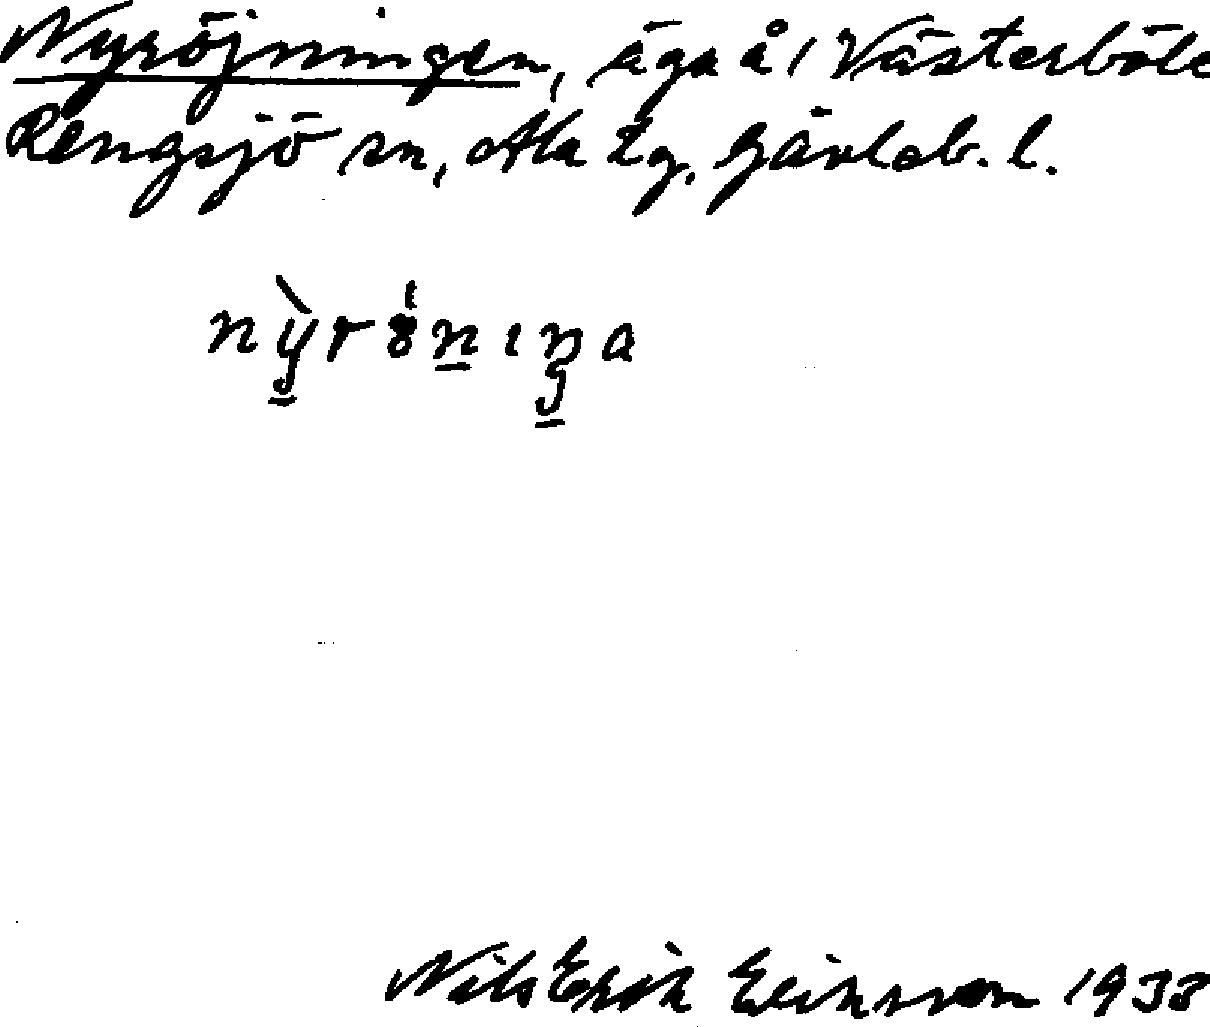 Nyröjningen, äga å 1 Västerböle
Rengsjö sn, Ala tg, Gävleb. l.
nỳrönıŋa
Nils Erik Eriksson 1933